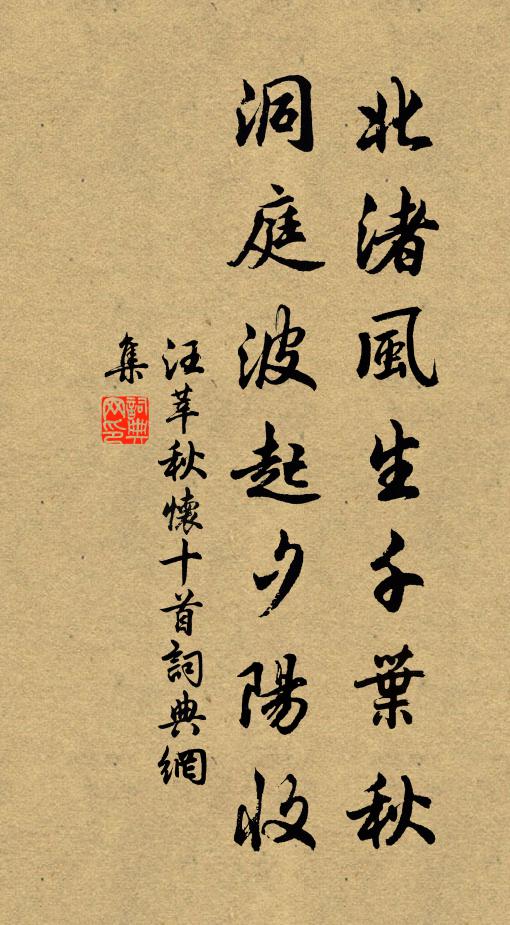 北渚風生千葉秋
洞庭波起夕陽收
汪莘秋懷十首詞典網
集
詞典网印